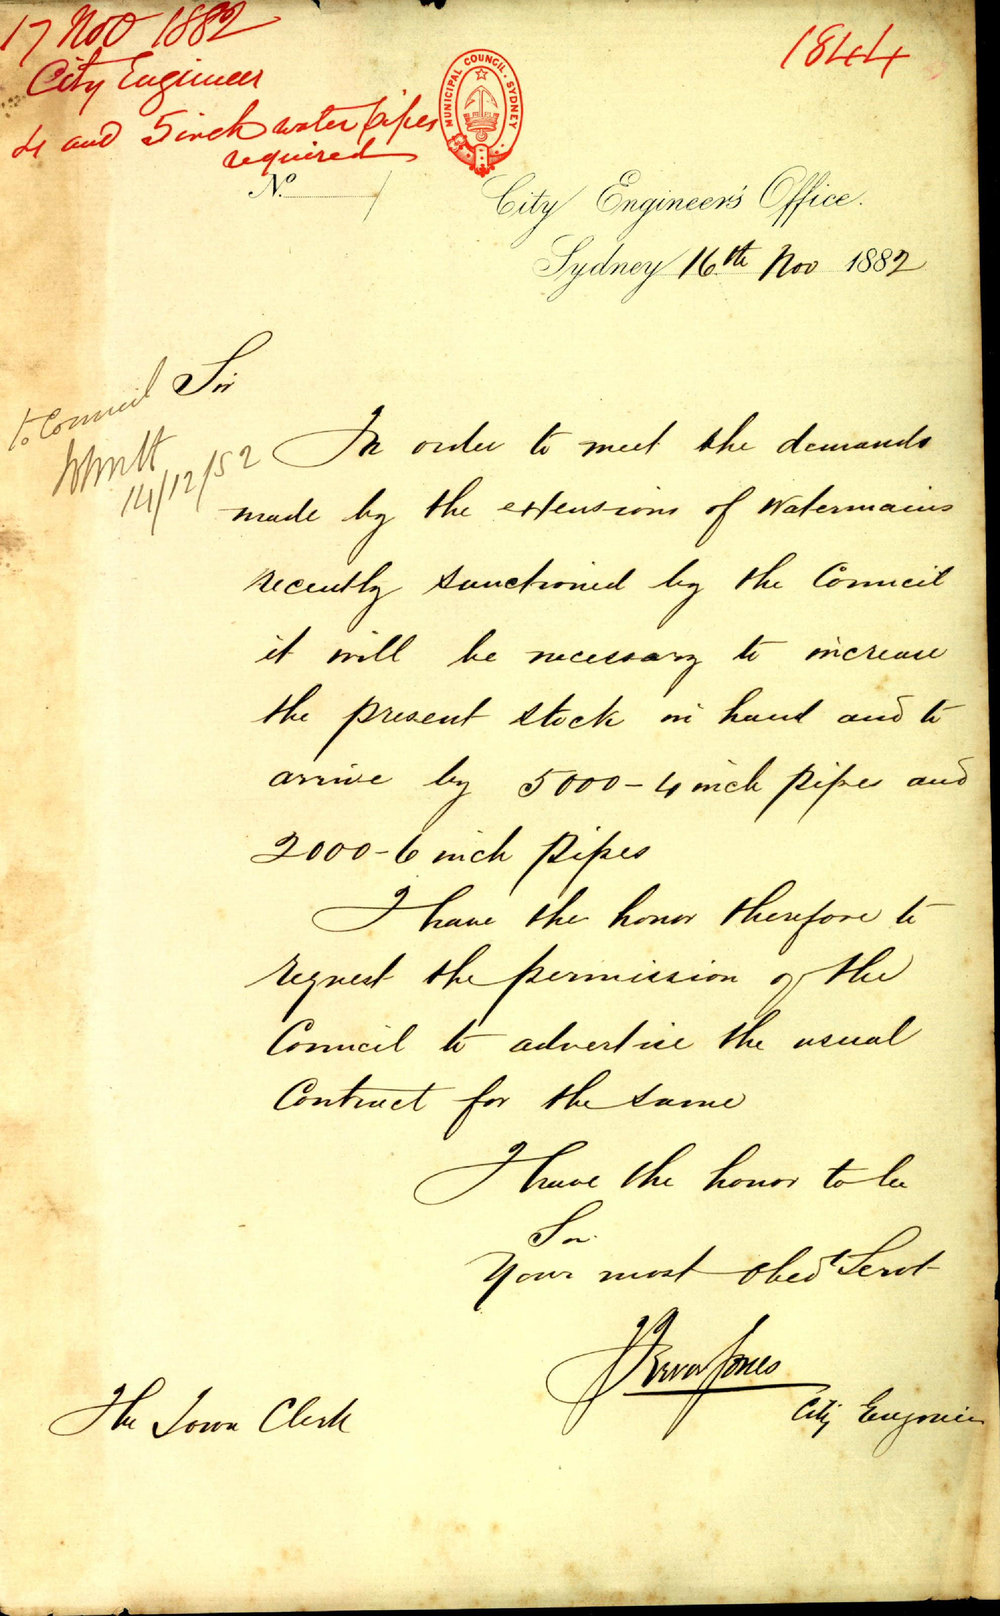 17 Nov 1882
City Engineer
4 and 5 inch water pipes
required
1844
MUNICIPAL COUNCIL. SYDNEY
No.
City Engineer's Office.
Sydney 16th Nov 1882
to Council
Sir
In order to meet the demands
made by the extensions of Watermains
recently sanctioned by the Council
it will be necessary to increase
the present stock in hand and to
arrive by 5000-4 inch pipes and
2000-6 inch pipes
I have the honor therefore to
request the permission of the
Council to advertise the usual
Contract for the same
I have the honor to be
Sir
Your most obedt Servt
Trevor Jones
City Engineer
The Town Clerk